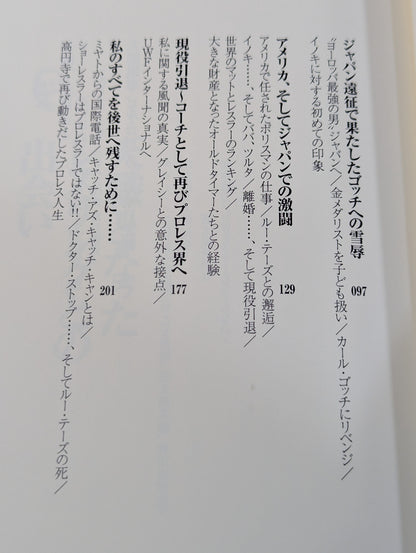 ジャパン遠征で果たしたゴッチへの雪辱 097
“ヨーロッパ最強の男”ジャパンへ／金メダリストを子ども扱い／カール・ゴッチにリベンジ／
イノキに対する初めての印象
アメリカ、そしてジャパンでの激闘 129
アメリカで任されたポリスマンの仕事／ルー・テーズとの邂逅／
イノキ……、そしてババ、ソルタ／離婚……、そして現役引退／
世界のマットとヒレスラーのランキング／
大きな財産となったオールドタイマーたちとの経験
現役引退～コーチとして再びプロレス界へ 177
私に関する風聞の真実／グレイシーとの意外な接点／
UWFインターナショナルへ
私のすべてを後世へ残すために…… 201
ミヤトからの国際電話／キャッチ・アズ・キャッチ・キャンとは／
ショーレスラーはプロレスラーではない!!／ドクター・ストップ……、そしてルー・テーズの死／
高円寺で再び動きだしたプロレス人生